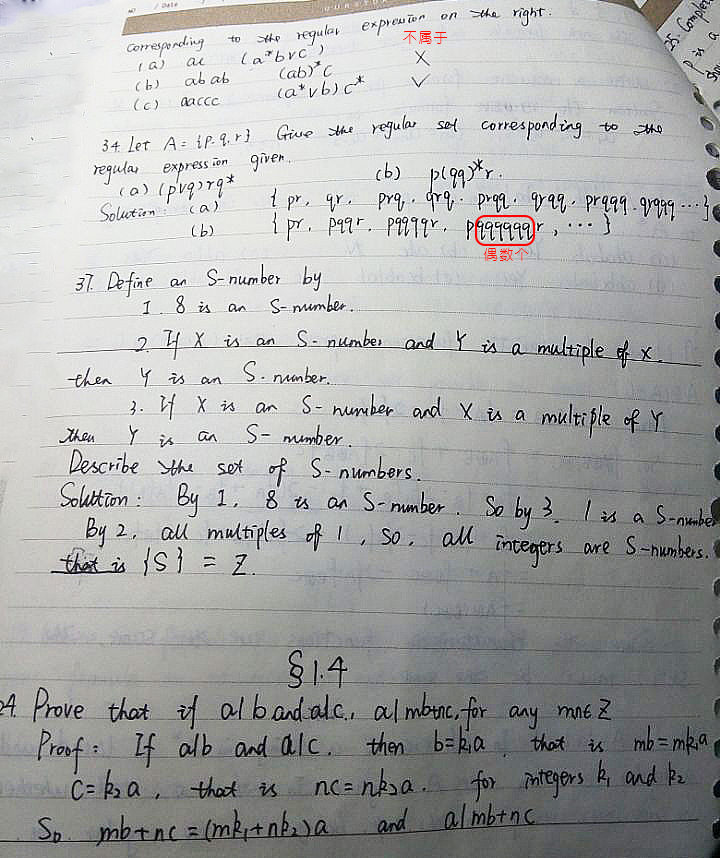 No / Date
corresponding to the regular expression on the right.
不属于
(a) ac (a*bvc) X
(b) abab (ab)*c
(c) aaccc (a*vb)c* ✓
34. Let A = {p.q.r} Give the regular set corresponding to the
regular expression given.
(a) (pvq)rq* (b) p(qq)*r.
Solution: (a) {pr, qr, prq, qrq, prqq, qrqq, prqqq, qrqqq ...}
(b) {pr, pqqr, pqqqqr, pqqqqqqr, ...}
偶数个
37. Define an S-number by
1. 8 is an S-number.
2. If X is an S-number and Y is a multiple of X.
then Y is an S-number.
3. If X is an S-number and X is a multiple of Y
then Y is an S-number.
Describe the set of S-numbers.
Solution: By 1, 8 is an S-number. So by 3. 1 is a S-number
By 2, all multiples of 1, so, all integers are S-numbers.
that is {S} = Z.
§1.4
24. Prove that if a|b and a|c, a|mb+nc, for any mn∈Z
Proof: If a|b and a|c. then b=k₁a, that is mb=mk₁a
c=k₂a, that is nc=nk₂a. for integers k₁ and k₂
So. mb+nc=(mk₁+nk₂)a and a|mb+nc
25. Complet
p is a